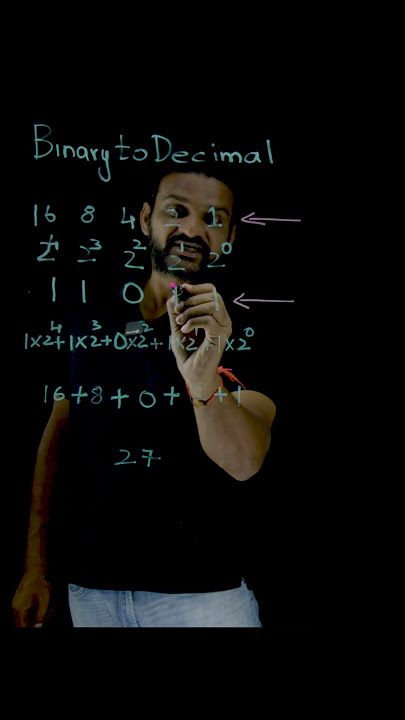 Binary to Decimal
16 8 4 2 1
2⁴ 2³ 2² 2¹ 2⁰
1 1 0 1 1
1×2⁴+1×2³+0×2²+1×2¹+1×2⁰
16+8+0+ +1
27